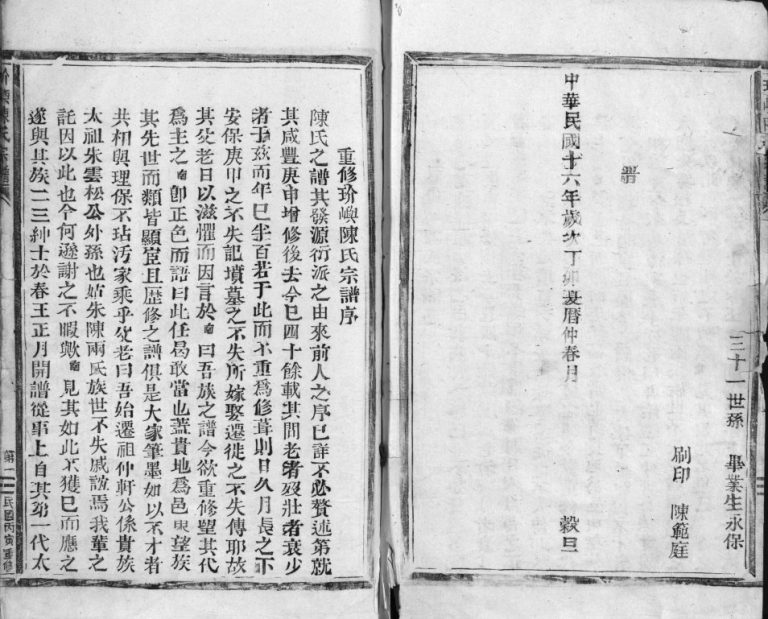 三十一世孫　畢業生永保
刷印　陳範庭
譜
中華民國十六年歲次丁卯夏曆仲春月　穀旦
重修玠嶼陳氏宗譜序
陳氏之譜其發源衍派之由來前人之序已詳不必贅述第就
其咸豐庚申增修後去今已四十餘載其間老者歿壯者衰少
者于茲而年已半百若于此而不重爲修葺則日久月長之下
安保庚甲之不失記墳墓之不失所嫁娶遷徙之不失傳耶故
其父老日以滋懼而因言於 曰吾族之譜今欲重修望其代
爲主之 卽正色而語曰此任曷敢當也蓋貴地爲邑 望族
其先世而類皆顯宦且歷修之譜俱是大家筆墨如以不才者
共相與理保不玷汚家乘乎父老曰吾始遷祖仲軒公係貴族
太祖朱雲松公外孫也姑朱陳兩氏族世不失戚誼焉我輩之
託因以此也今何遜謝之不暇歟 見其如此不獲已而應之
遂與其族二三紳士於春王正月開譜從事上自其第一代太
玠嶼陳氏宗譜
第一
民國丙寅重修